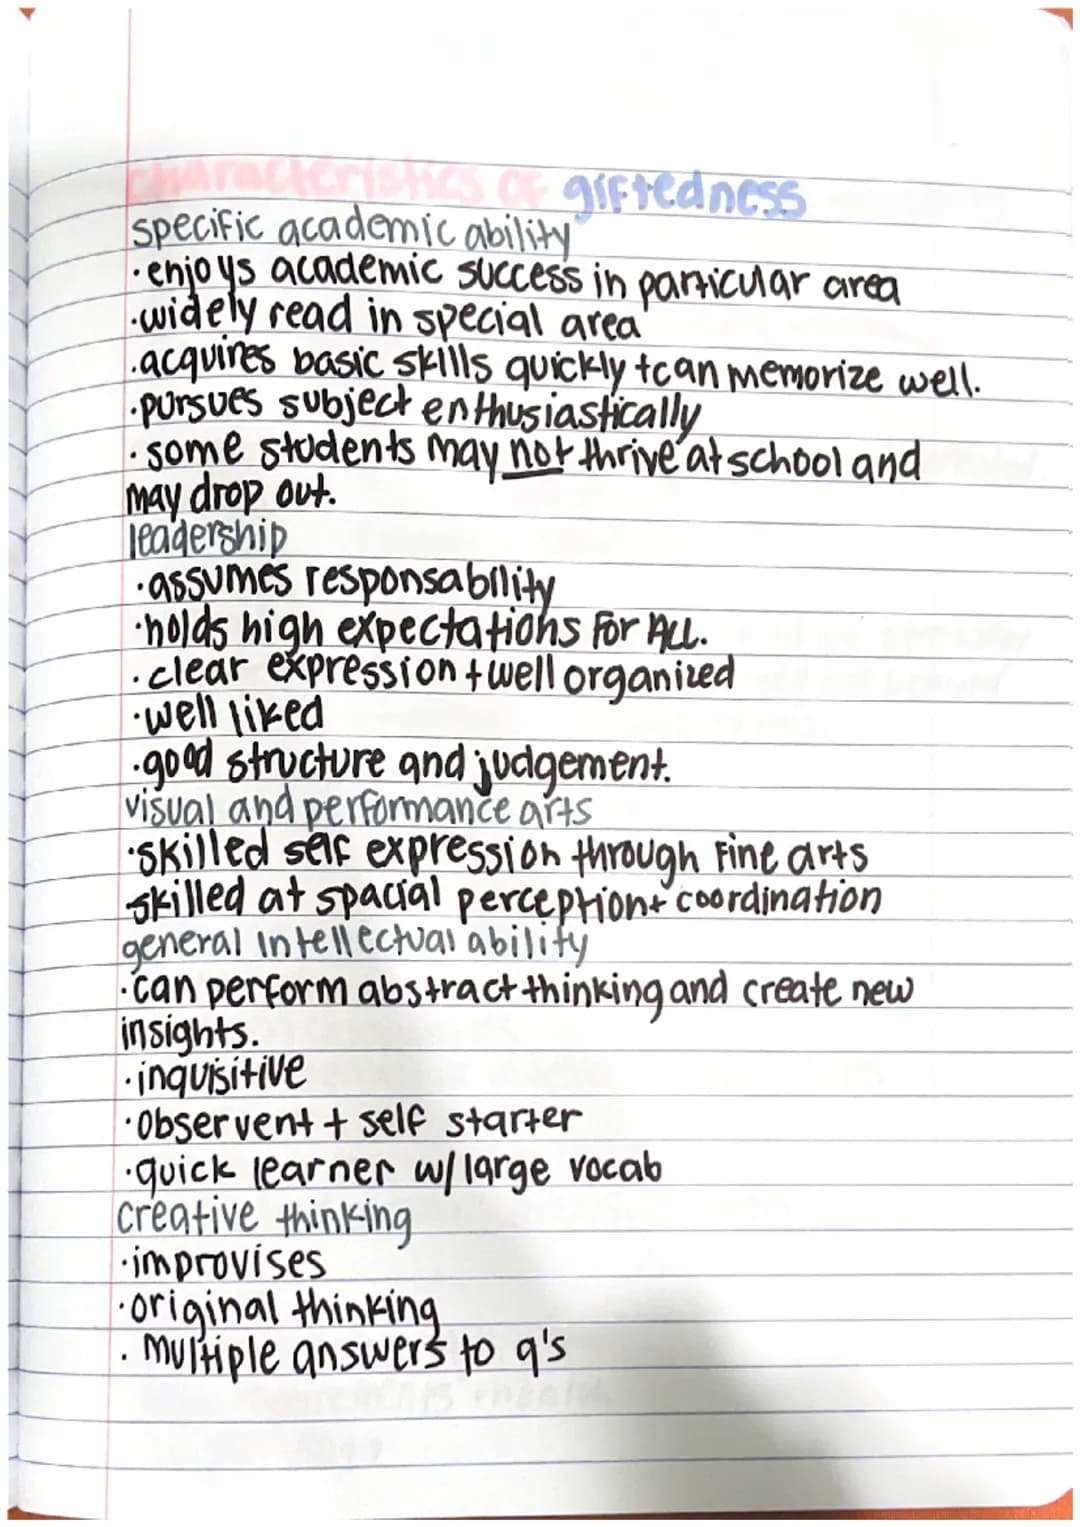 characteristics of giftedness
specific academic ability
·enjoys academic success in particular area
·widely read in special area
·acquires basic skills quickly +can memorize well.
·pursues subject enthusiastically
·some students may not thrive at school and
may drop out.
leadership
·assumes responsability
·holds high expectations for ALL.
·clear expression + well organized
·well liked
·good structure and judgement.
visual and performance arts
·skilled self expression through fine arts
·skilled at spacial perception+ coordination
general intellectual ability
·can perform abstract thinking and create new
insights.
·inquisitive
·observent + self starter
·quick learner w/ large vocab
creative thinking
·improvises
·original thinking
·multiple answers to q's